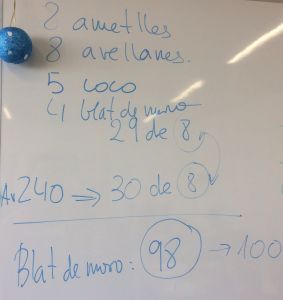 2 ametlles
8 avellanes.
5 coco
4 blat de moro
29 de 8
Av 240 ⇒ 30 de 8
Blat de moro: 98 → 100